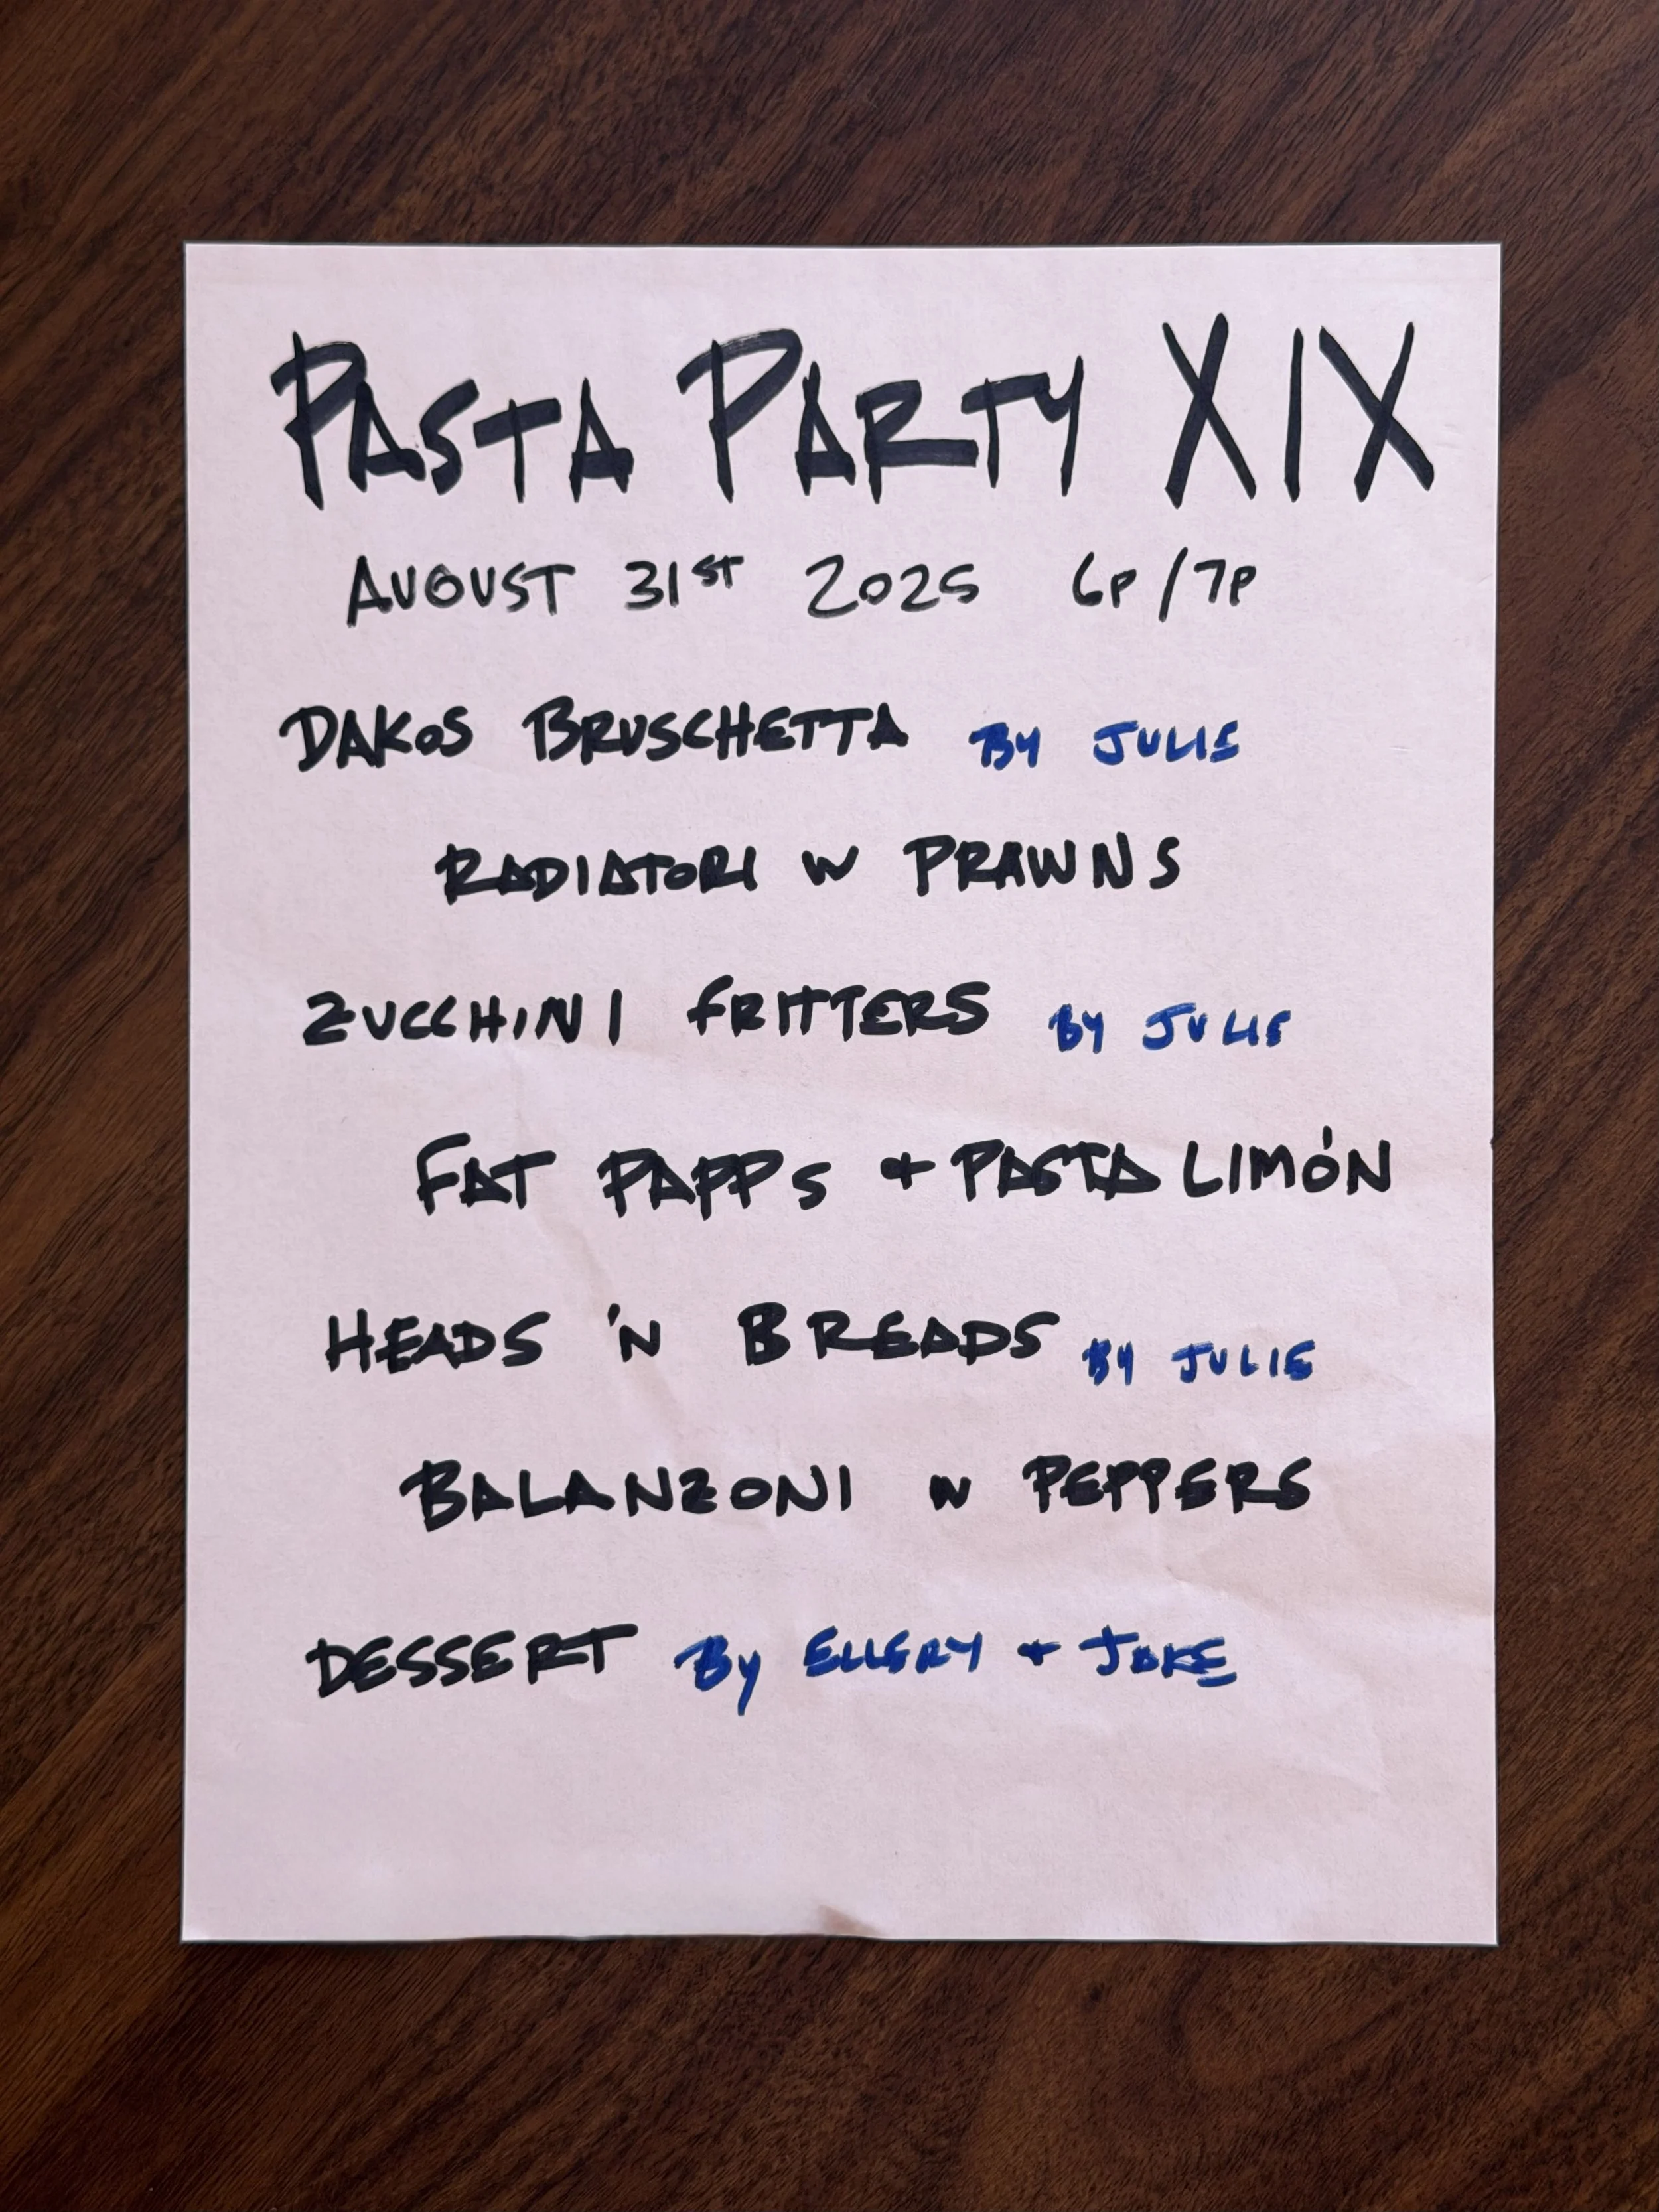 PASTA PARTY XIX
AUGUST 31ST 2025 6P/7P
DAKOS BRUSCHETTA BY JULIE
RADIATORI W PRAWNS
ZUCCHINI FRITTERS BY JULIE
FAT PAPPS + PASTA LIMÓN
HEADS 'N BREADS BY JULIE
BALANZONI W PEPPERS
DESSERT BY ELLERY + JAKE